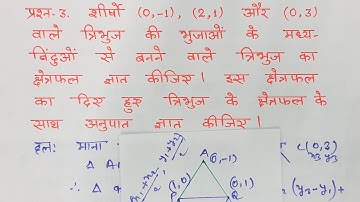 प्रश्न-3. शीर्षों (0,-1), (2,1) और (0,3)
वाले त्रिभुज की भुजाओं के मध्य-
बिंदुओं से बनने वाले त्रिभुज का
क्षेत्रफल ज्ञात कीजिए। इस क्षेत्रफल
का दिए हुए त्रिभुज के क्षेत्रफल के
साथ अनुपात ज्ञात कीजिए।
हलः माना
C(0,3)
x₃ y₃
A
(0,-1)
(1,0)
(0,1)
(y₃-y₁)+